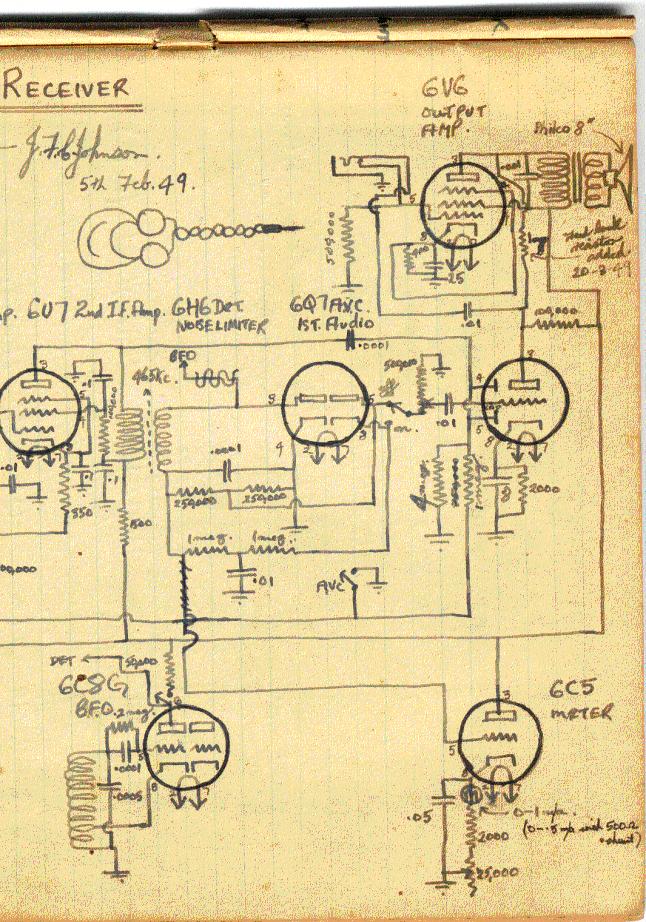 RECEIVER
J.F.C. Johnson.
5th Feb. 49.
6V6
OUTPUT
AMP.
Philco 8"
.0001
500,000
400
25
1 meg
feed back
resistor
added
20-3-49
.01
100,000
p. 6U7 2nd I.F. Amp.
6H6 DET.
NOISE LIMITER
6Q7 A.V.C.
1ST. Audio
.0001
465Kc.
BFO
500,000
off
on.
.01
.0001
250,000
250,000
350
500
2000
1 meg.
1 meg.
.01
AVC
DET
50,000
6C8G
B.F.O.
.2 meg.
.0001
.0005
6C5
METER
.05
0-1 m/a.
(0-.5 m/a with 500Ω
shunt)
2000
25,000